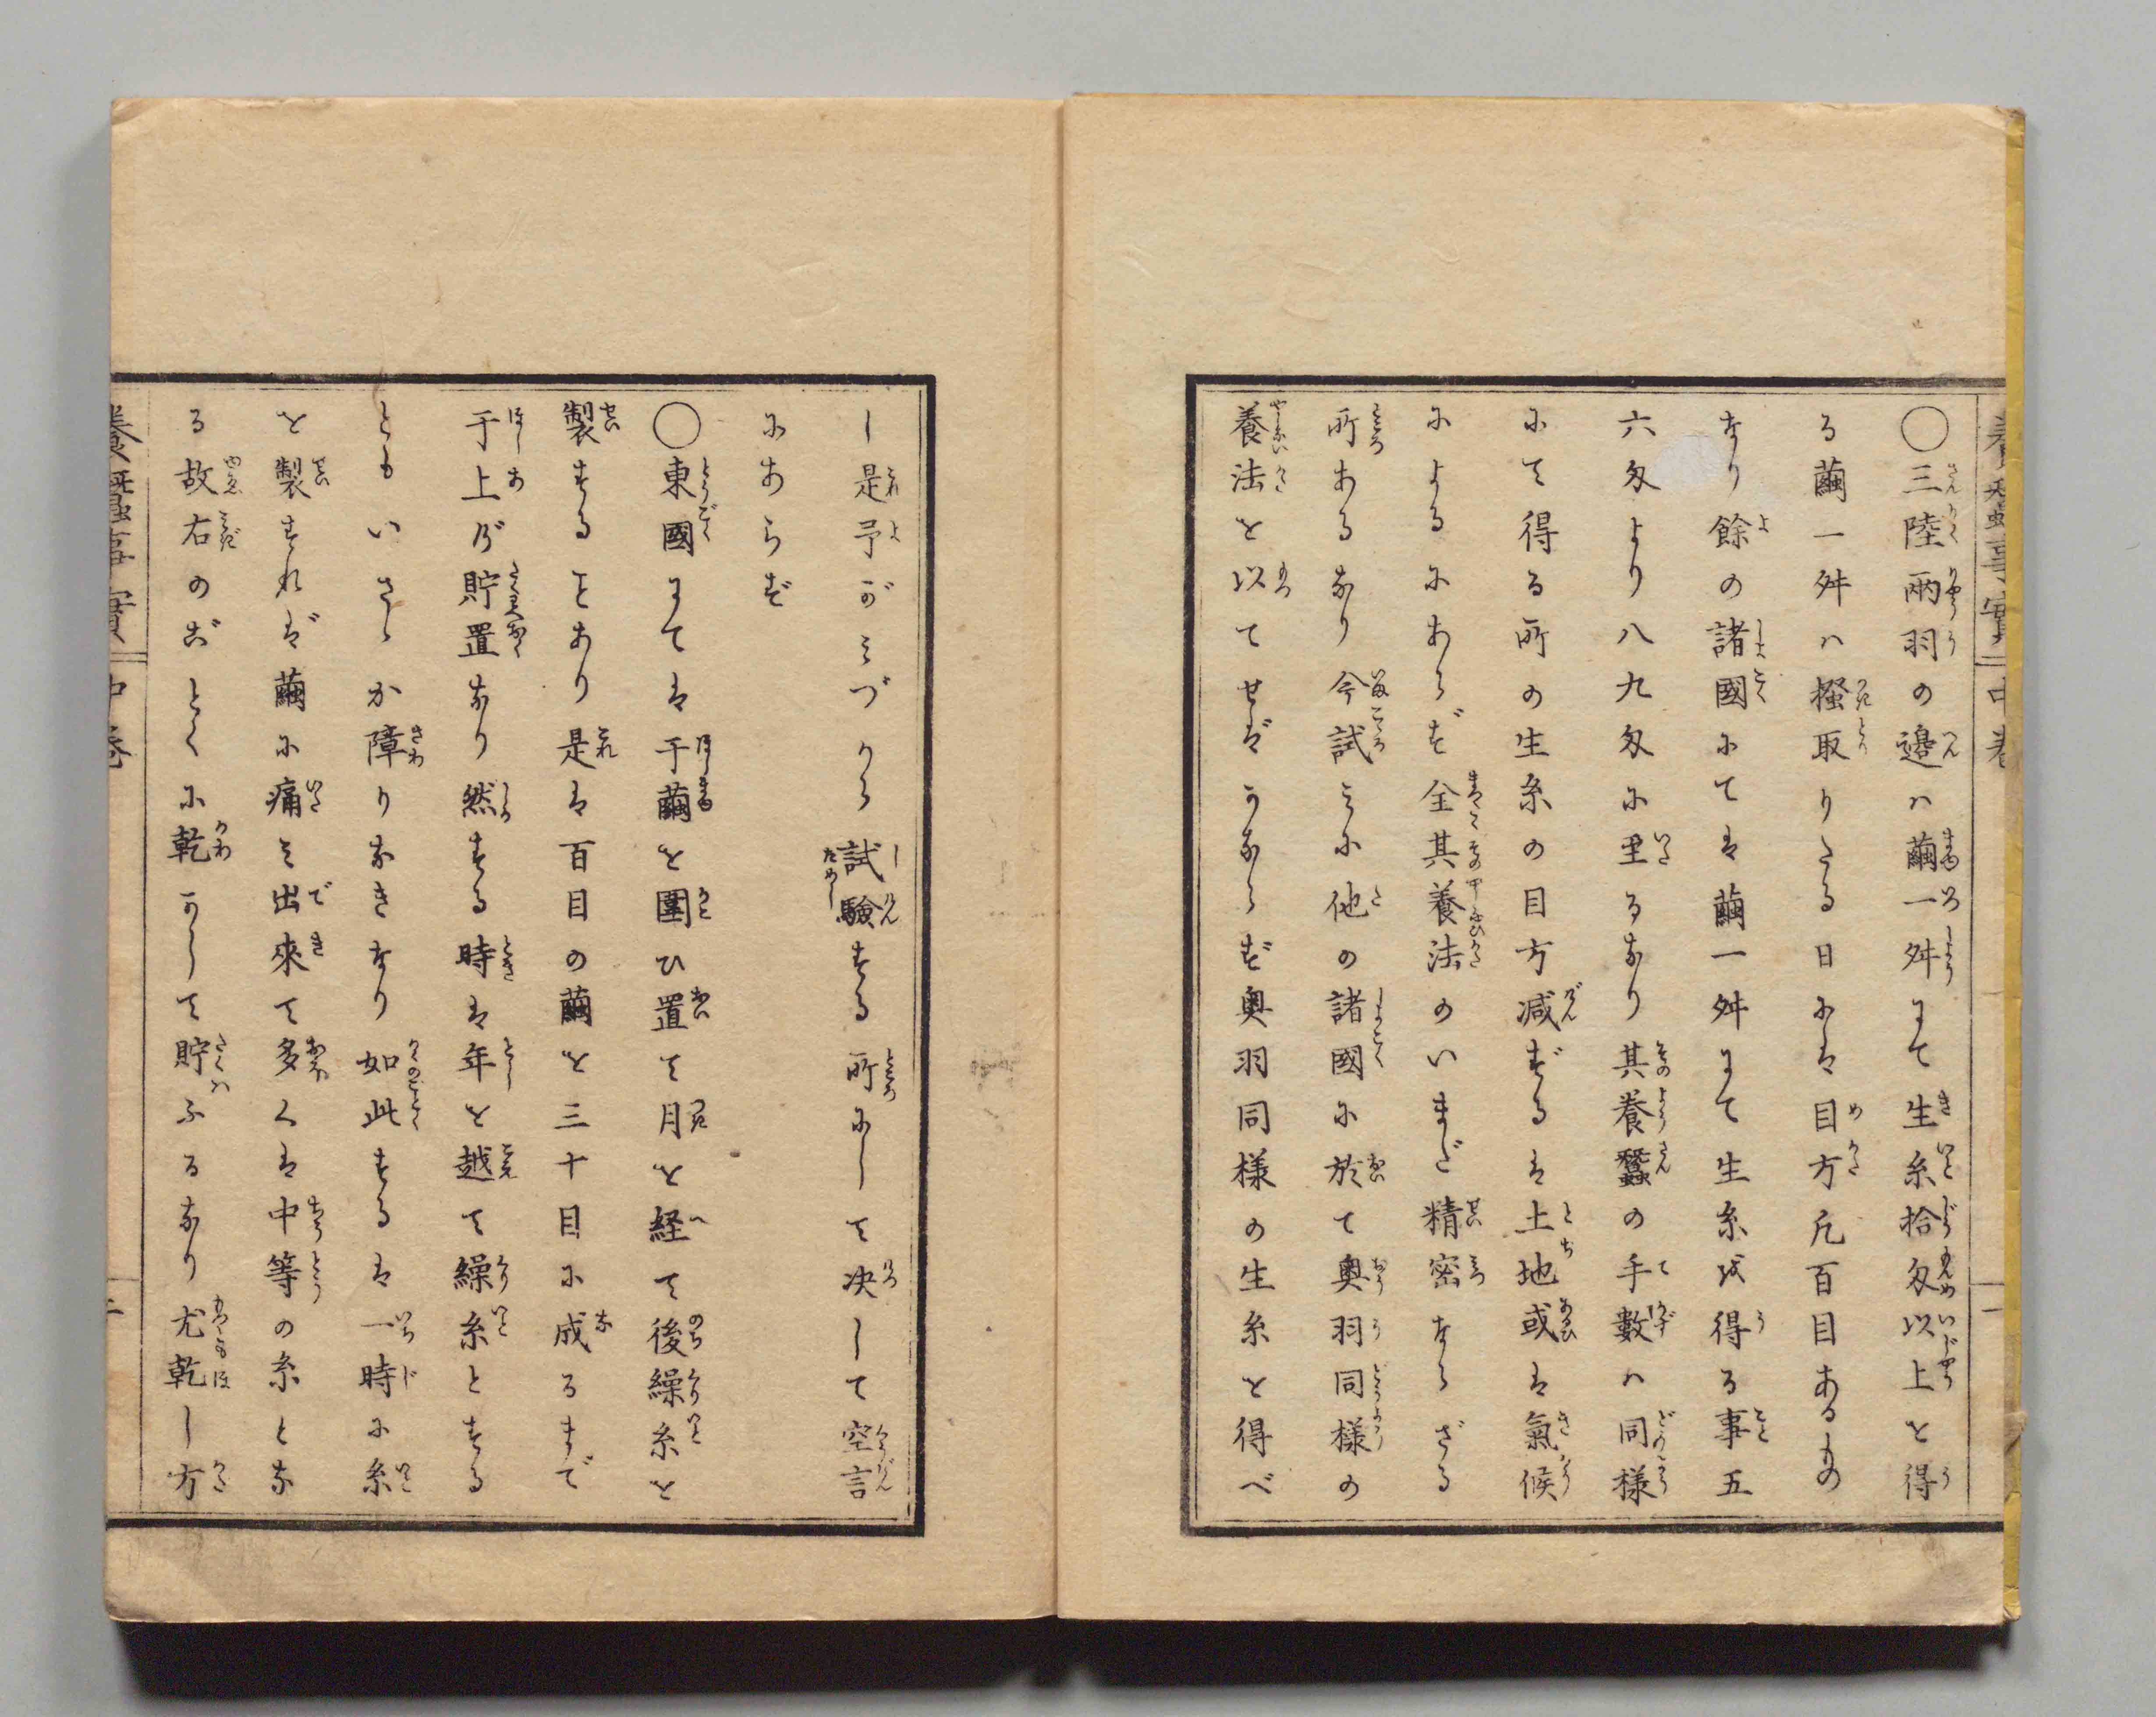 養蠶事實 中巻 一
〇三陸兩羽の邉ハ繭一舛まて生糸拾匁以上を得
る繭一舛ハ搔取りたる日にハ目方凡百目あるもの
なり餘の諸國にてハ繭一舛まて生糸を得る事五
六匁より八九匁に至るなり其養蠶の手數ハ同様
にて得る所の生糸の目方减ずるハ土地或ハ氣候
によるにあらず全其養法のいまだ精密ならざる
所あるなり今試ミに他の諸國に於て奥羽同様の
養法を以てせバかならず奥羽同様の生糸を得べ
し是予がミづから試驗する所にして决して空言
にあらず
〇東國まてハ干繭を圍ひ置て月を経て後繰糸を
製することあり是ハ百目の繭を三十目に成るまで
干上げ貯置なり然する時ハ年を越て繰糸とする
ともいさゝか障りなきなり如此するハ一時に糸
を製すれバ繭に痛ミ出來て多くハ中等の糸とな
る故右のごとくに乾かして貯ふるなり尤乾し方
養蠶事實 中巻 二